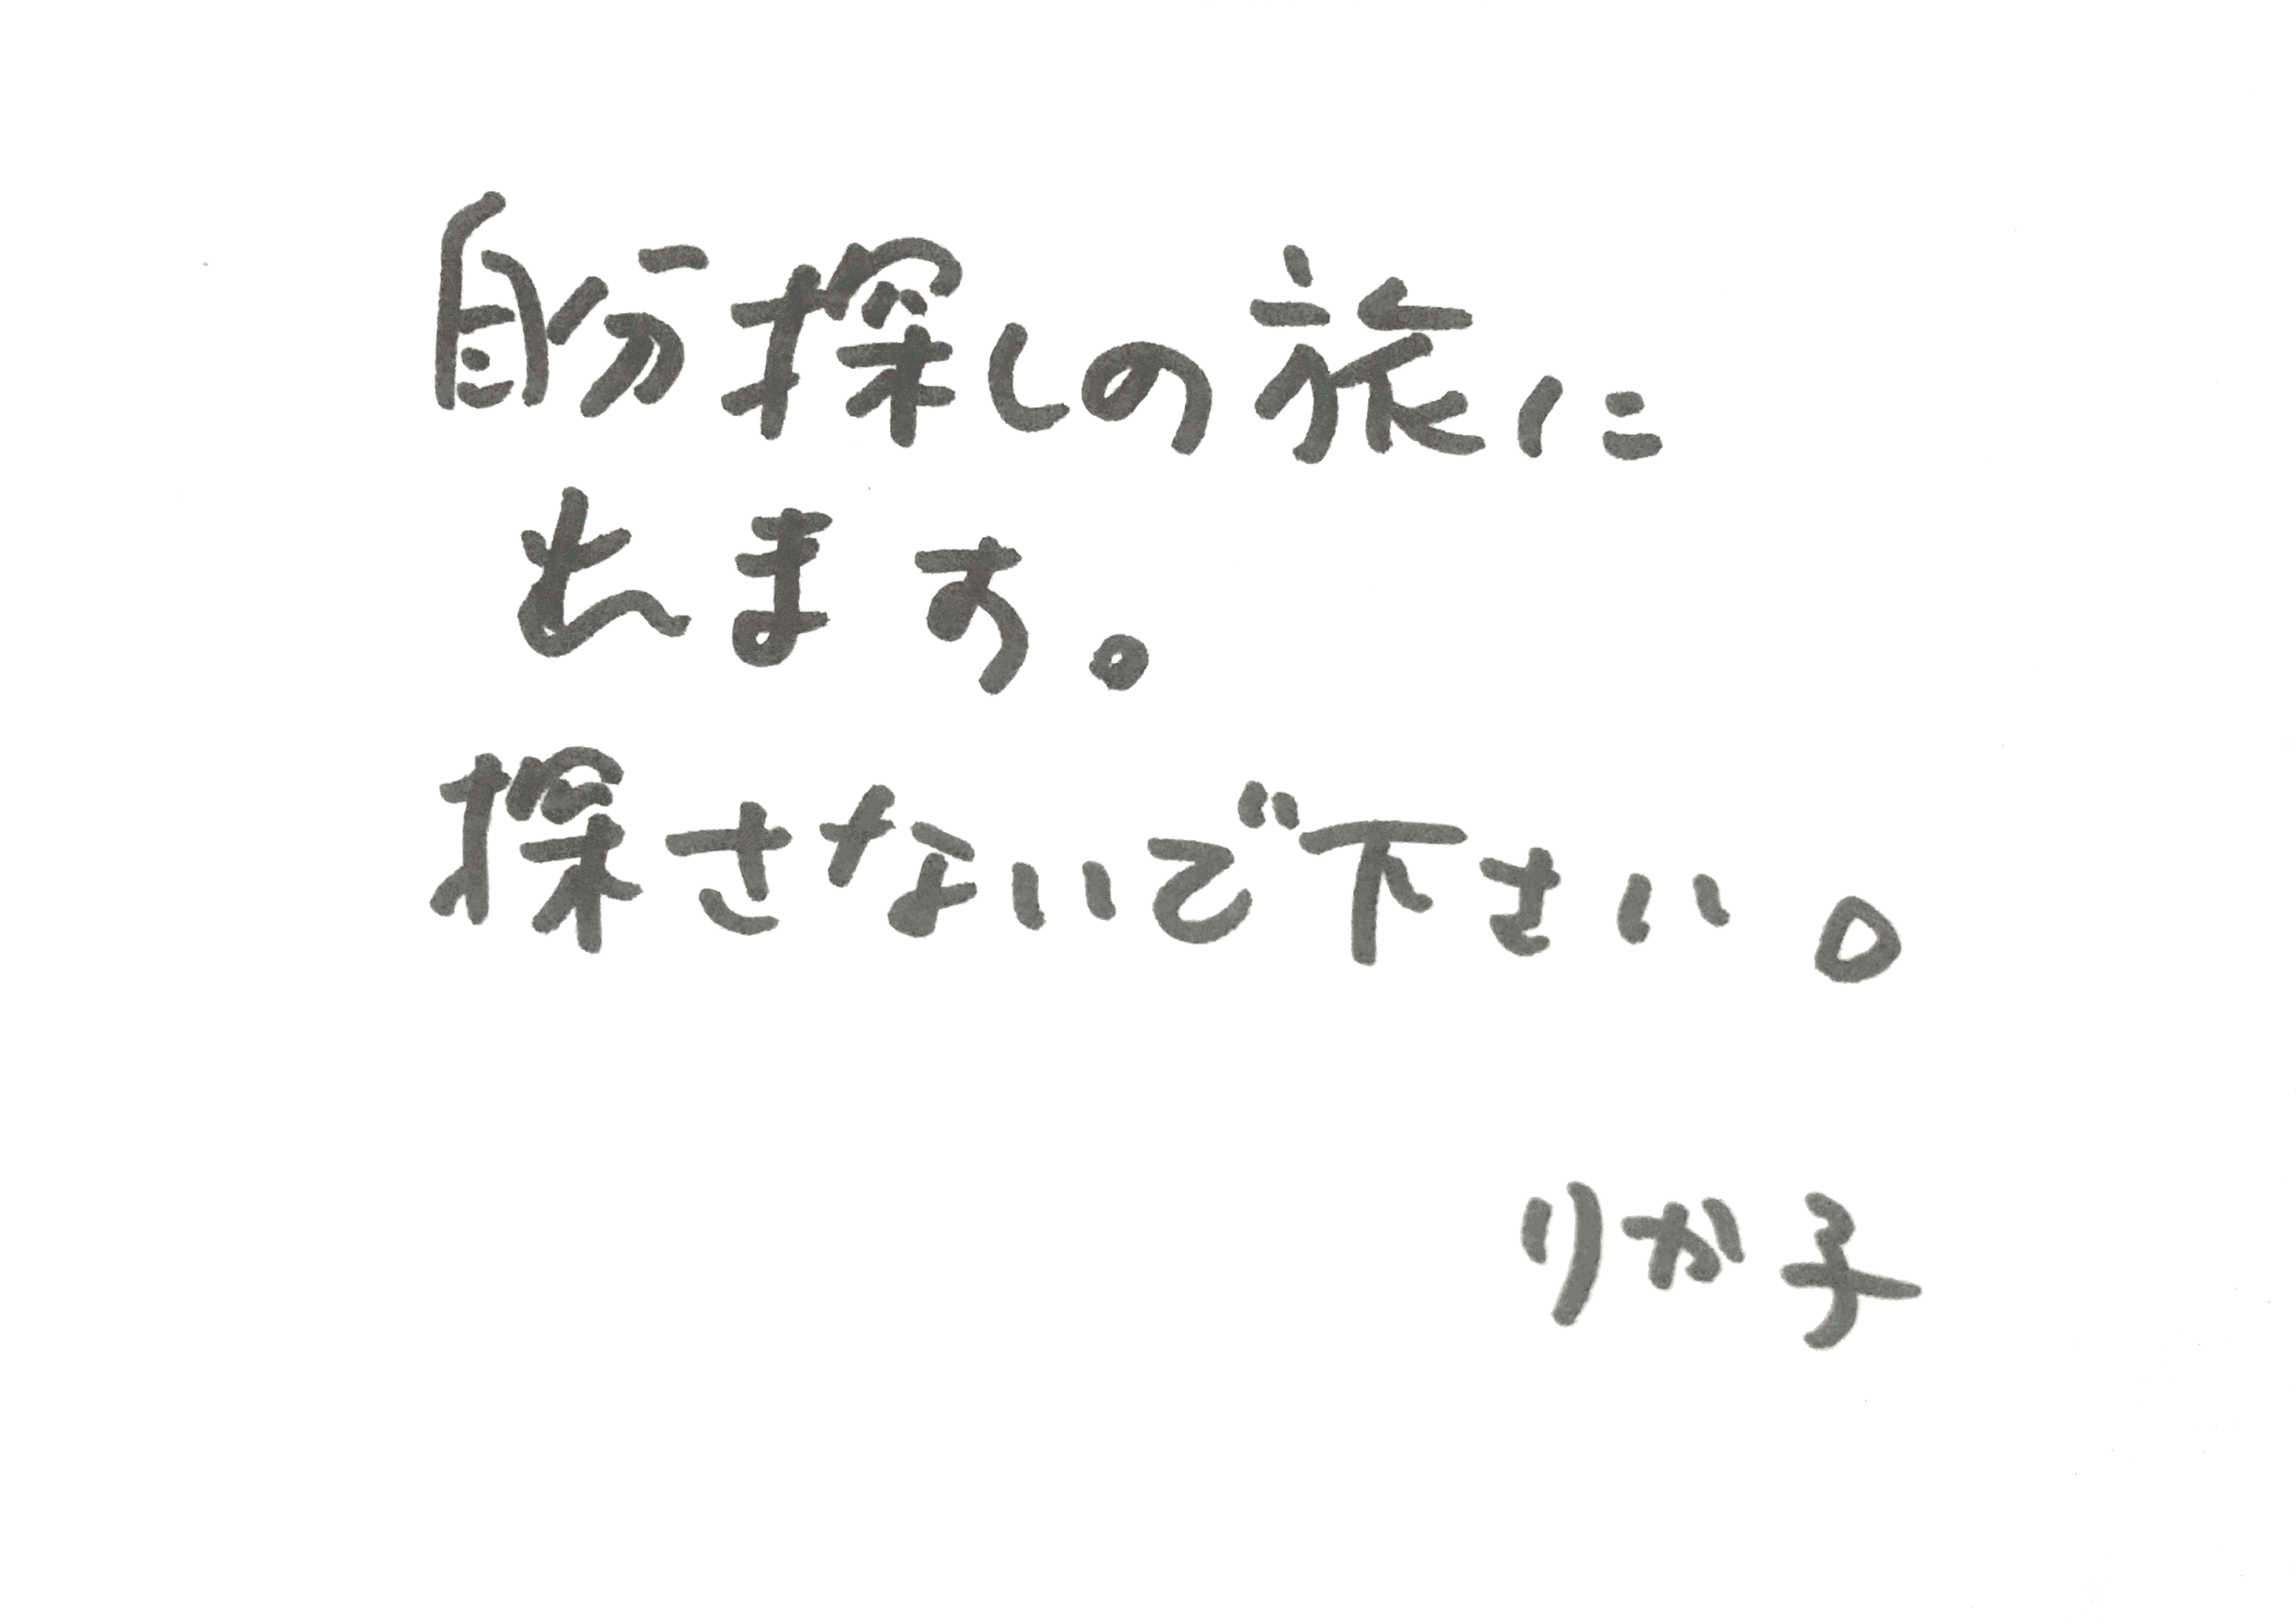 自分探しの旅に
出ます。
探さないで下さい。
りか子